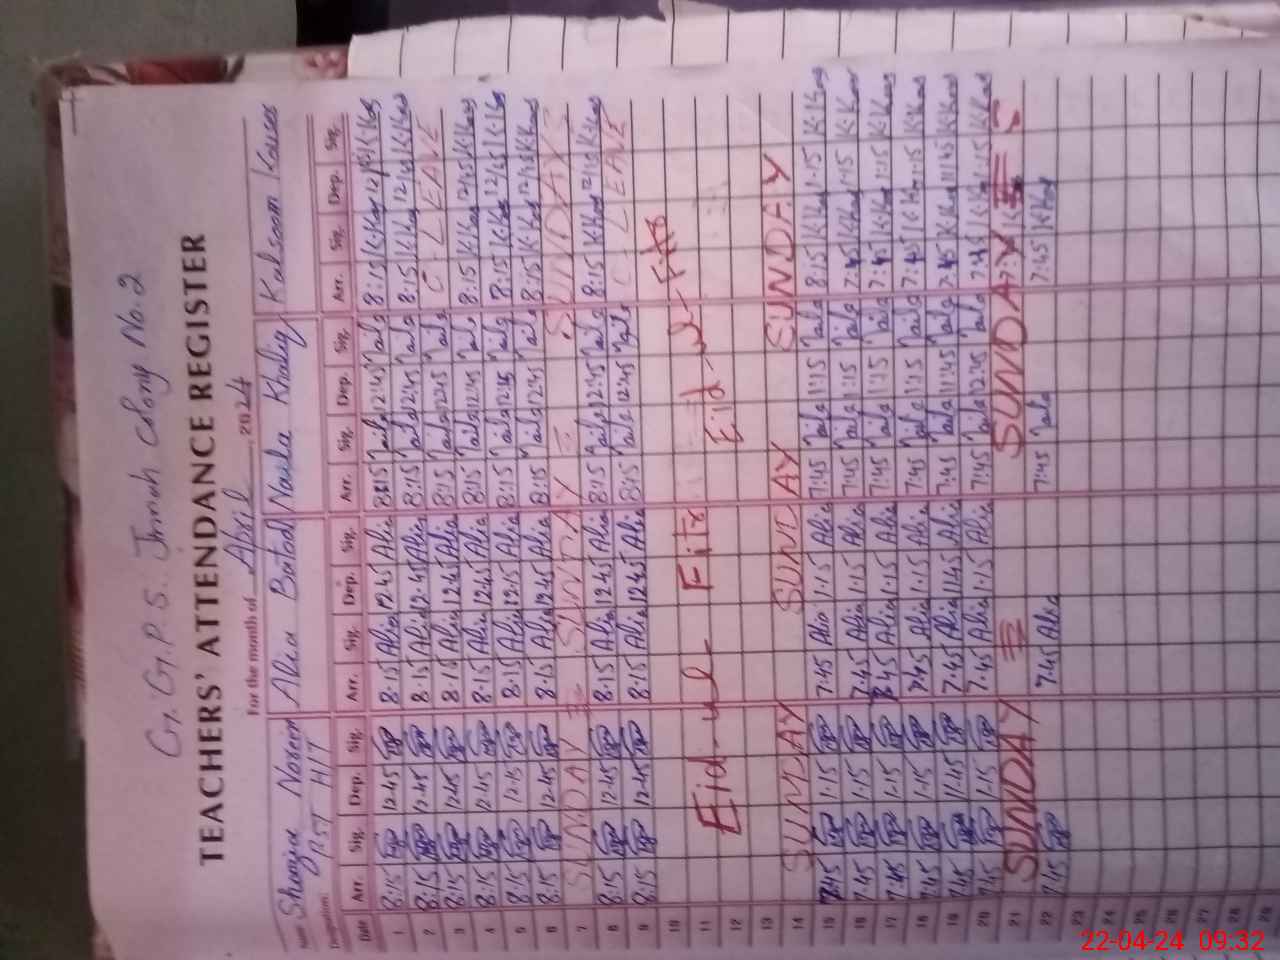 G. G.P.S. Jinnah Colony No.2
TEACHERS' ATTENDANCE REGISTER
For the month of April, 2024
Name Shagufta Naheed Alia Batool Naila Khaliq Kalsoom Kauser
Designation: PST H/T
Date Arr. Sig. Dep. Sig. Arr. Sig. Dep. Sig. Arr. Sig. Dep. Sig. Arr. Sig. Dep. Sig.
1 8:15 12:45 8:15 Alia 12:45 Alia 8:15 Naila 12:45 Naila 8:15 K.Kos 12:15 K.Kos
2 8:15 12:45 8:15 Alia 12:45 Alia 8:15 Naila 12:45 Naila 8:15 K.Kos 12:45 K.Kos
3 8:15 12:45 8:15 Alia 12:45 Alia 8:15 Naila 12:45 Naila C. LEAVE
4 8:15 12:45 8:15 Alia 12:45 Alia 8:15 Naila 12:45 Naila 8:15 K.Kos 12:45 K.Kos
5 8:15 12:15 8:15 Alia 12:15 Alia 8:15 Naila 12:15 Naila 8:15 K.Kos 12:45 K.Kos
6 8:15 12:45 8:15 Alia 12:45 Alia 8:15 Naila 12:45 Naila 8:15 K.Kos 12:45 K.Kos
7 SUNDAY SUNDAY SUNDAY
8 8:15 12:45 8:15 Alia 12:45 Alia 8:15 Naila 12:45 Naila 8:15 K.Kos 12:45 K.Kos
9 8:15 12:45 8:15 Alia 12:45 Alia 8:15 Naila 12:45 Naila C. LEAVE
10
11 Eid-ul-Fitr Eid-ul-Fitr
12
13
14 SUNDAY SUNDAY SUNDAY
15 7:45 1:15 7:45 Alia 1:15 Alia 7:45 Naila 1:15 Naila 8:15 K.Kos 1:15 K.Kos
16 7:45 1:15 7:45 Alia 1:15 Alia 7:45 Naila 1:15 Naila 7:45 K.Kos 1:15 K.Kos
17 7:45 1:15 8:45 Alia 1:15 Alia 7:45 Naila 1:15 Naila 7:45 K.Kos 1:15 K.Kos
18 7:45 1:15 7:45 Alia 1:15 Alia 7:45 Naila 1:15 Naila 7:45 K.Kos 1:15 K.Kos
19 7:45 11:45 7:45 Alia 11:45 Alia 7:45 Naila 11:45 Naila 7:45 K.Kos 11:45 K.Kos
20 7:45 1:15 7:45 Alia 1:15 Alia 7:45 Naila 12:45 Naila 7:45 K.Kos 1:15 K.Kos
21 SUNDAY SUNDAY
22 7:45 7:45 Alia 7:45 Naila 7:45 K.Kos
23
24
25
26
27
28
29
22-04-24 09:32